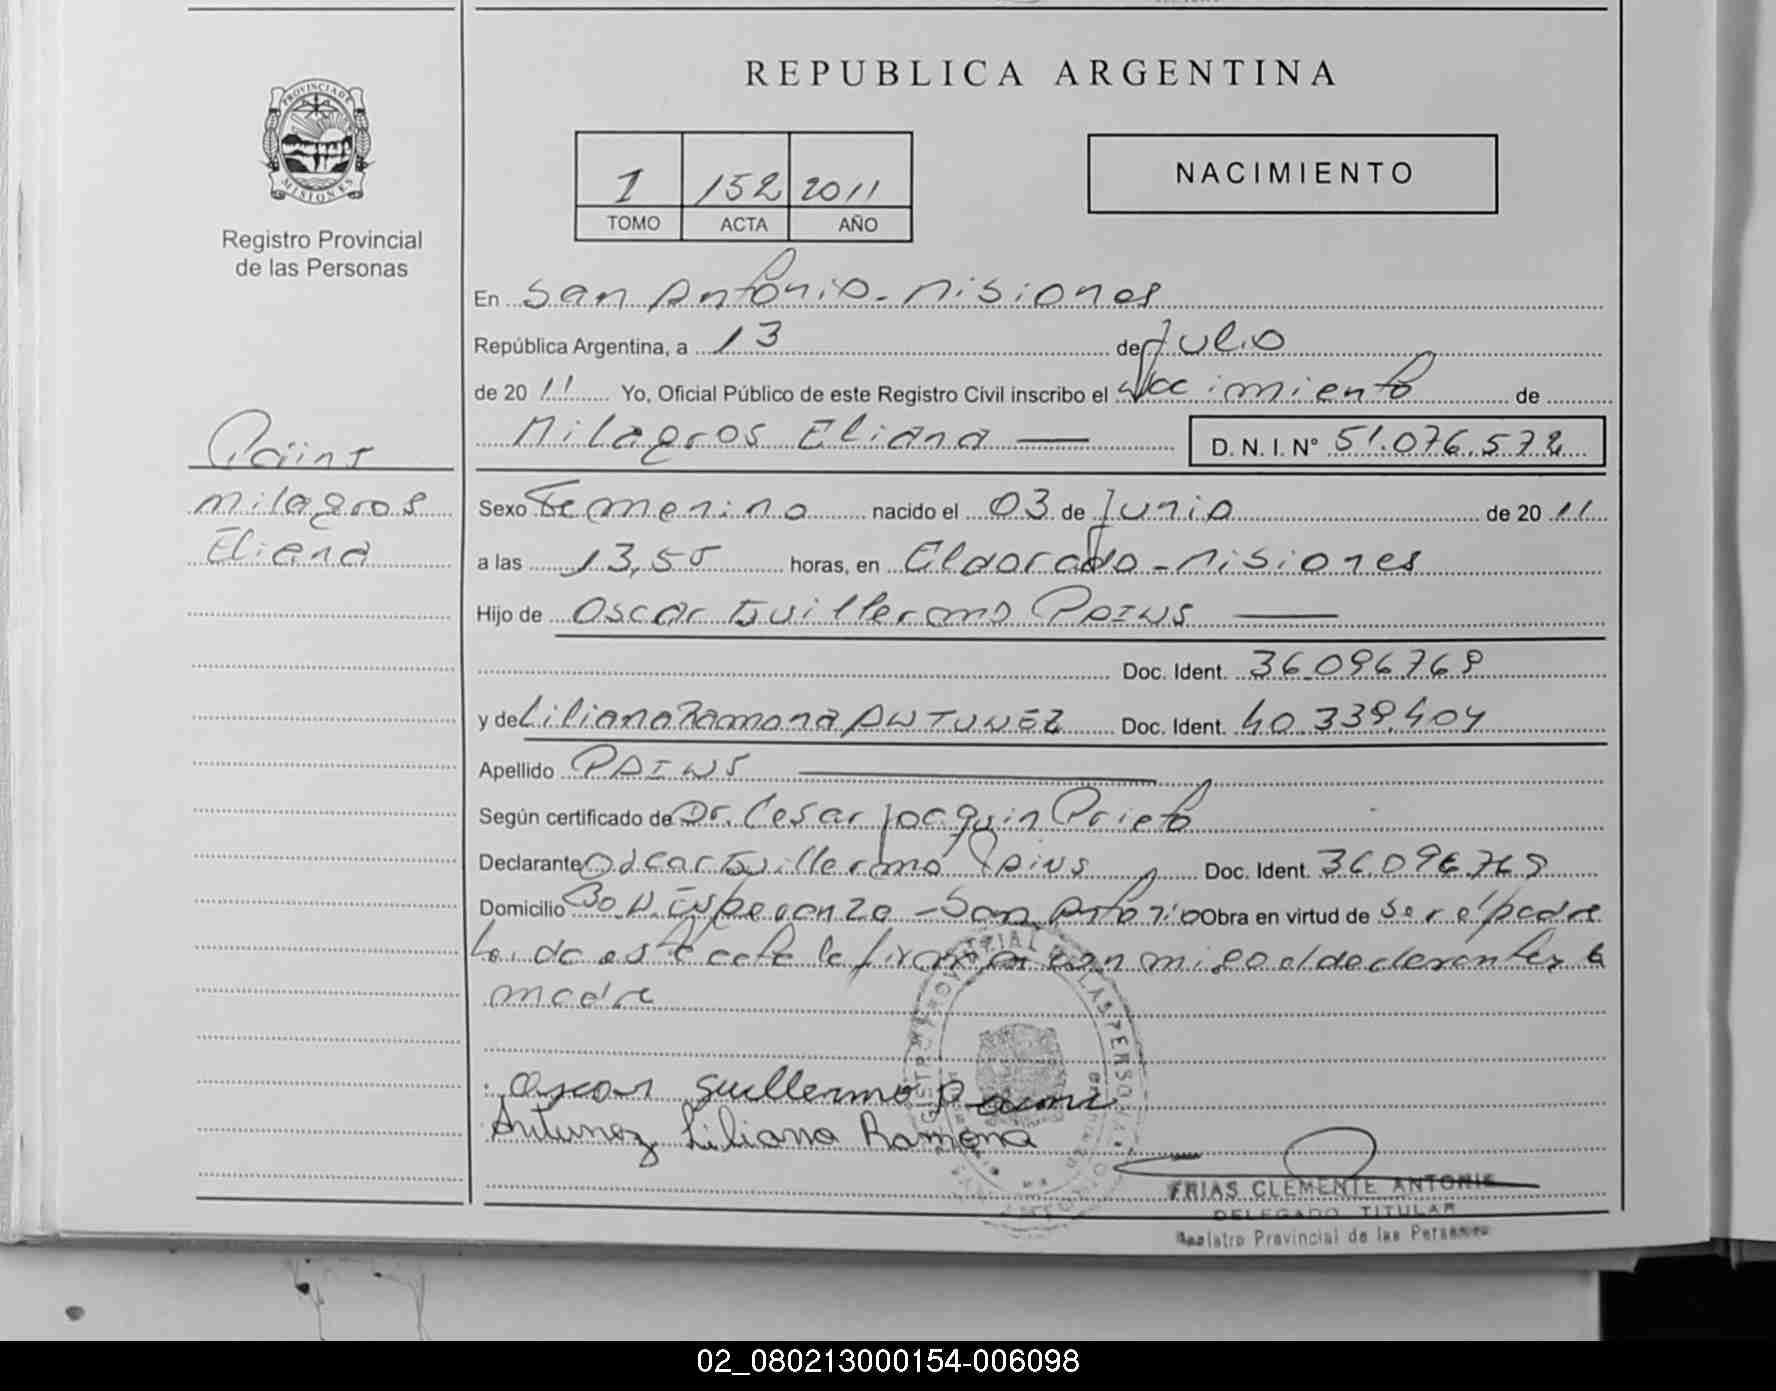 REPUBLICA ARGENTINA
PROVINCIA DE
MISIONES
Registro Provincial
de las Personas
1 152 2011
TOMO ACTA AÑO
NACIMIENTO
En San Antonio - Misiones
República Argentina, a 13 de Julio
de 2011 Yo, Oficial Público de este Registro Civil inscribo el Nacimiento de
Milagros Eliana D. N. I. N° 51.076.572
Paiins
Milagros
Eliana
Sexo Femenino nacido el 03 de Junio de 2011
a las 13,55 horas, en Eldorado - Misiones
Hijo de Oscar Guillermo PAINS
Doc. Ident. 36.096.769
y de Liliana Ramona ANTUNEZ Doc. Ident. 40.339.404
Apellido PAINS
Según certificado de Dr. Cesar Joaquin Prieto
Declarante Oscar Guillermo Pains Doc. Ident. 36.096.769
Domicilio Bo N. Esperanza - San Antonio Obra en virtud de ser el padre
leida este acta la firman con migo el declarante y la
madre
Oscar Guillermo
Antunez Liliana Ramona
FRIAS CLEMENTE ANTONIO
DELEGADO TITULAR
Registro Provincial de las Personas
02_080213000154-006098